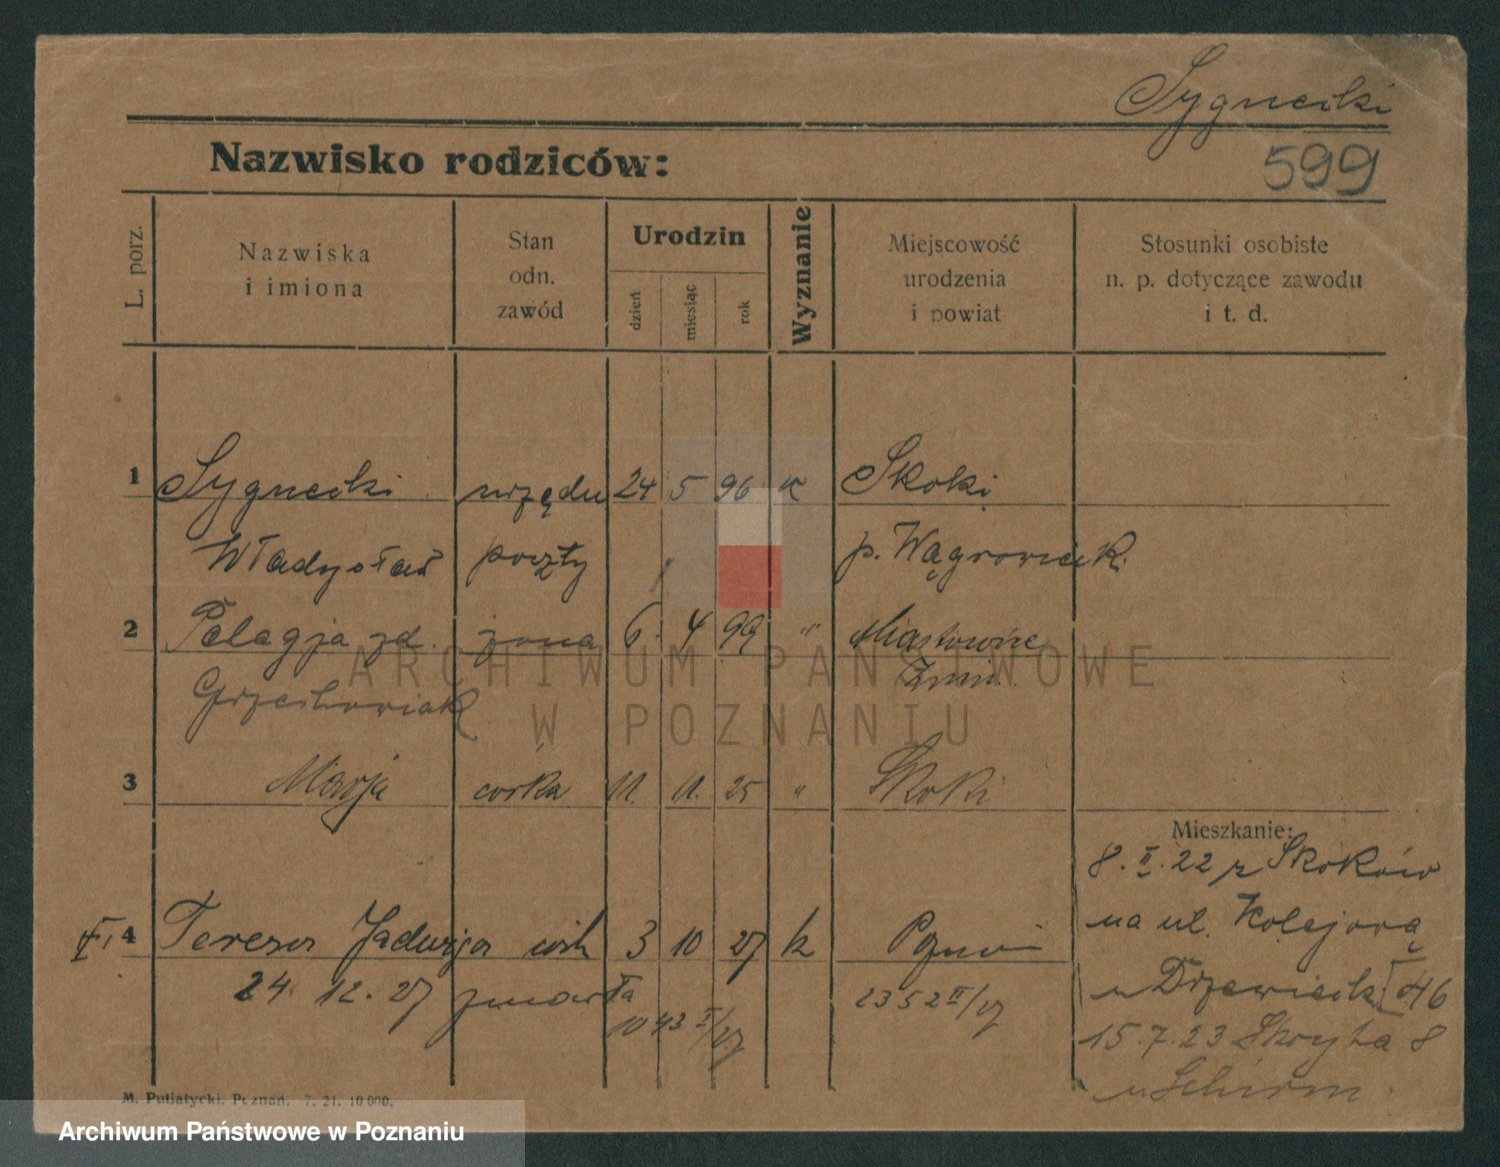 Sygnecki
599
Nazwisko rodziców:
L. porz.
Nazwiska i imiona
Stan odn. zawód
Urodzin
dzień
miesiąc
rok
Wyznanie
Miejscowość urodzenia i powiat
Stosunki osobiste n. p. dotyczące zawodu i t. d.
1 Sygnecki urzędn 24 5 96 K Skoki
Władysław poczty p. Wągrowiecki
2 Pelagja zd. żona 6. 4 99 " Miastowice
Grzechowiak Żnin
3 Marja córka 11. 11. 25 " Skoki
Mieszkanie:
8. II. 22 z Skoków
na ul. Kolejową
u Drzewiecki 46
15.7.23 Skryta 8
u Schirm
4 Teresa Jadwiga 3 10 27 k Poznań
24. 12. 27 zmarła
1043 I/27
2352 II/27
M. Putiatycki. Poznań. 7. 21. 10 000.
ARCHIWUM PAŃSTWOWE
W POZNANIU
Archiwum Państwowe w Poznaniu